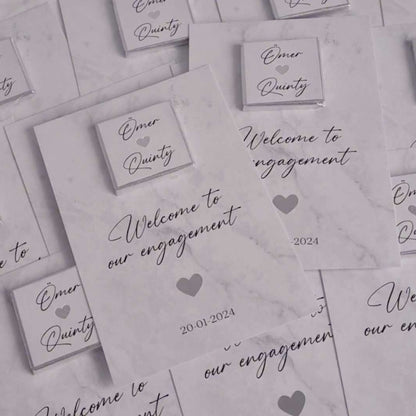 Ömer
Quinty
Ömer
Quinty
Ömer
Quinty
Welcome to
our engagement
20-01-2024
Welcome to
engagement
-2024
Welcome to
Ömer
Quinty
our engagement
Welcome to
We
our enga